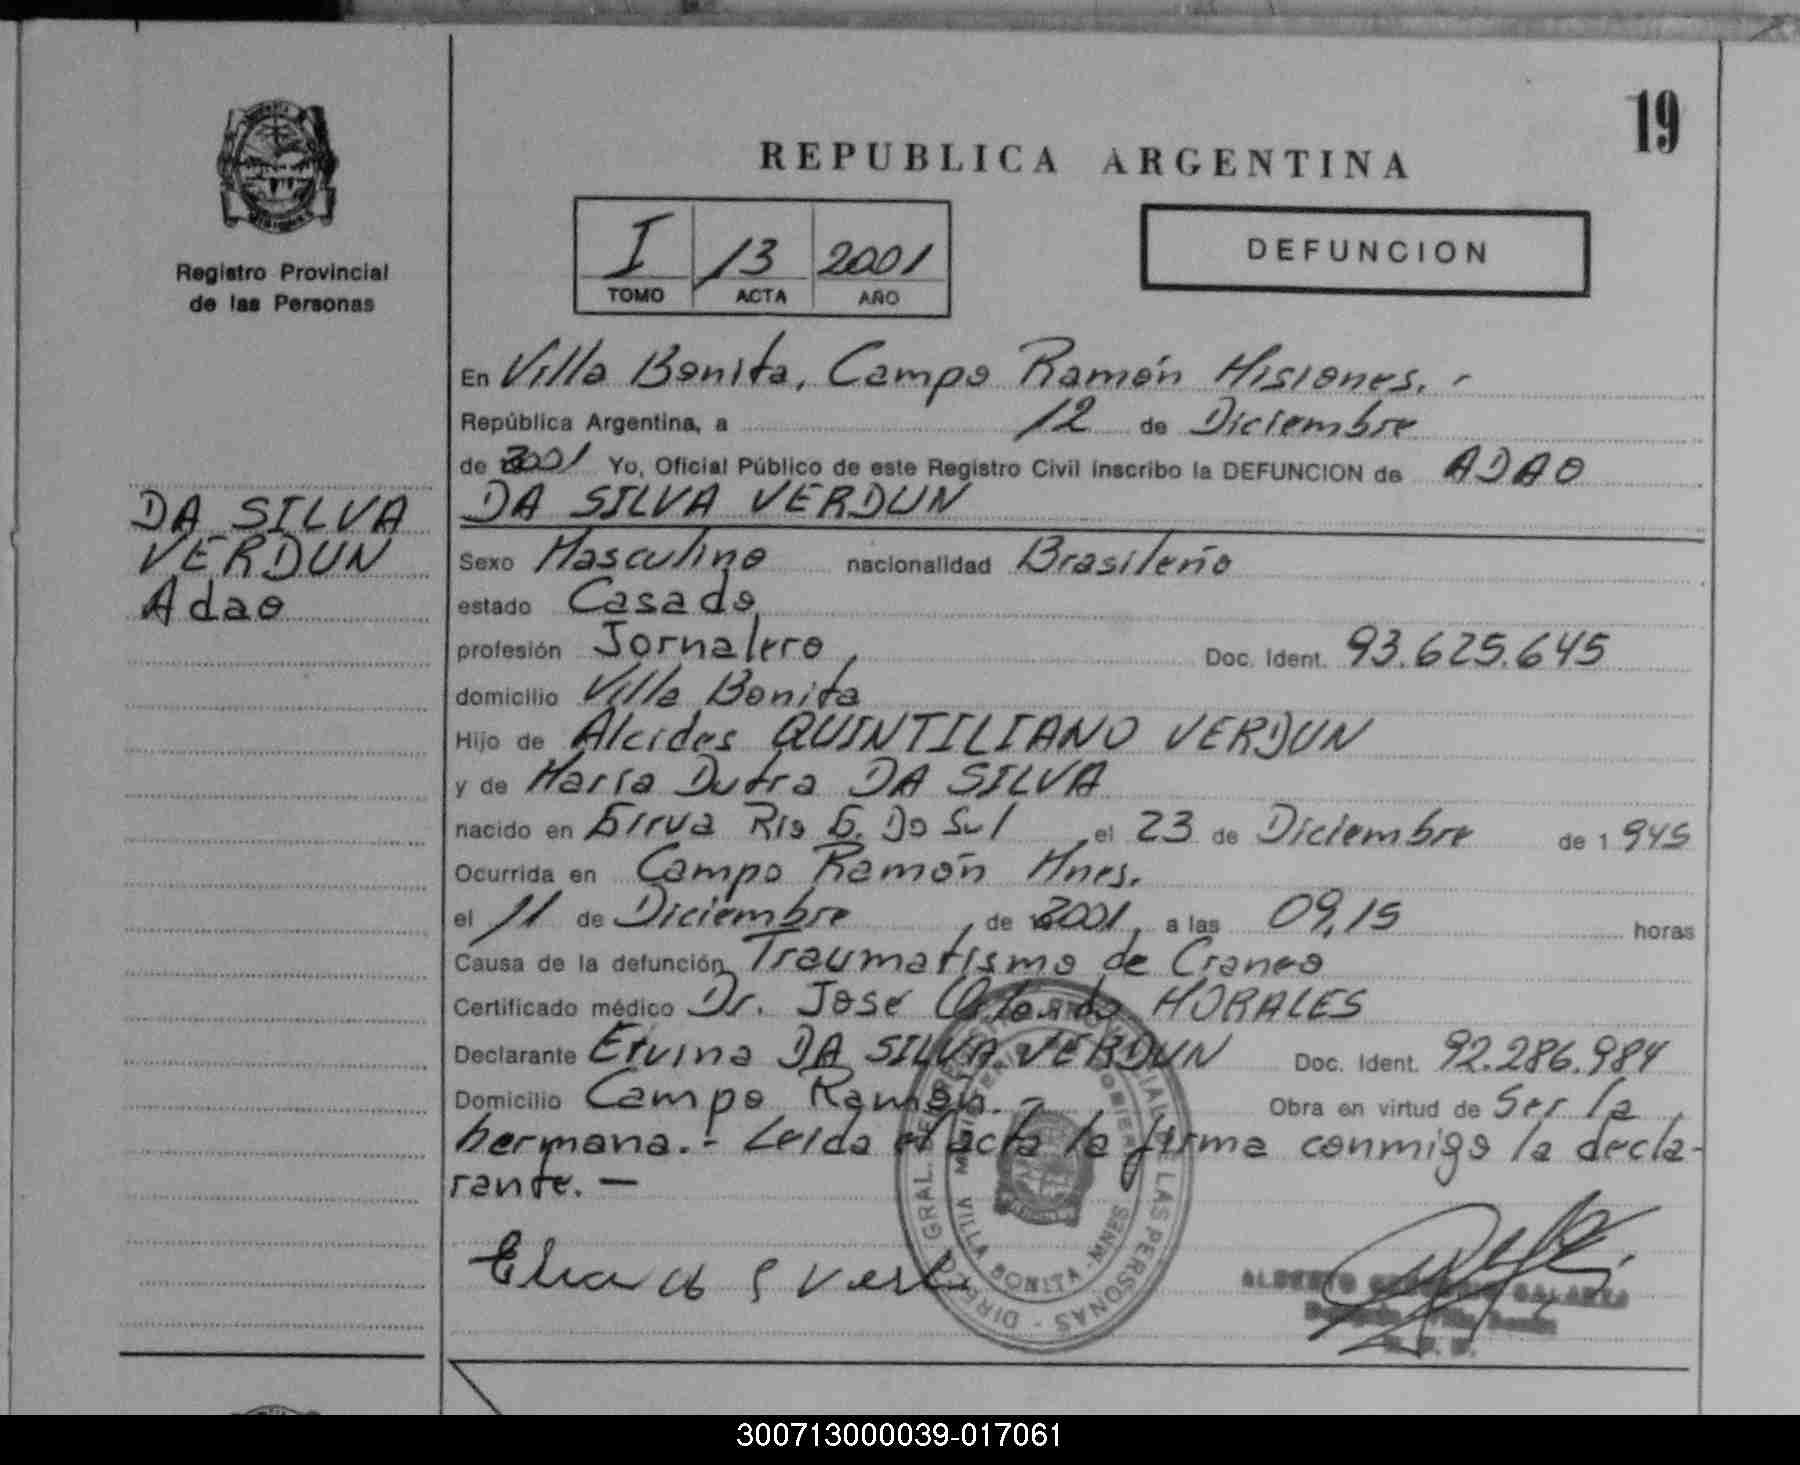 19
REPUBLICA ARGENTINA
Registro Provincial
de las Personas
I 13 2001
TOMO ACTA AÑO
DEFUNCION
En Villa Bonita, Campo Ramón Misiones. -
República Argentina, a 12 de Diciembre
de 2001 Yo, Oficial Público de este Registro Civil inscribo la DEFUNCION de ADAO
DA SILVA VERDUN
DA SILVA
VERDUN
Adao
Sexo Masculino nacionalidad Brasileño
estado Casado
profesión Jornalero, Doc. Ident. 93.625.645
domicilio Villa Bonita
Hijo de Alcides QUINTILIANO VERDUN
y de María Dutra DA SILVA
nacido en Girua Rio G. Do Sul, el 23 de Diciembre de 1945
Ocurrida en Campo Ramón Mnes.
el 11 de Diciembre, de 2001, a las 09,15 horas
Causa de la defunción Traumatismo de Craneo
Certificado médico Dr. José Orlando MORALES
Declarante Etvina DA SILVA VERDUN Doc. Ident. 92.286.984
Domicilio Campo Ramón. - Obra en virtud de Ser la
hermana. - Leida el acta la firma conmigo la decla-
rante. —
DIREC. GRAL. DE REGISTRO PROVINCIAL DE LAS PERSONAS
VILLA BONITA - MNES
ALBERTO GALARZA
300713000039-017061